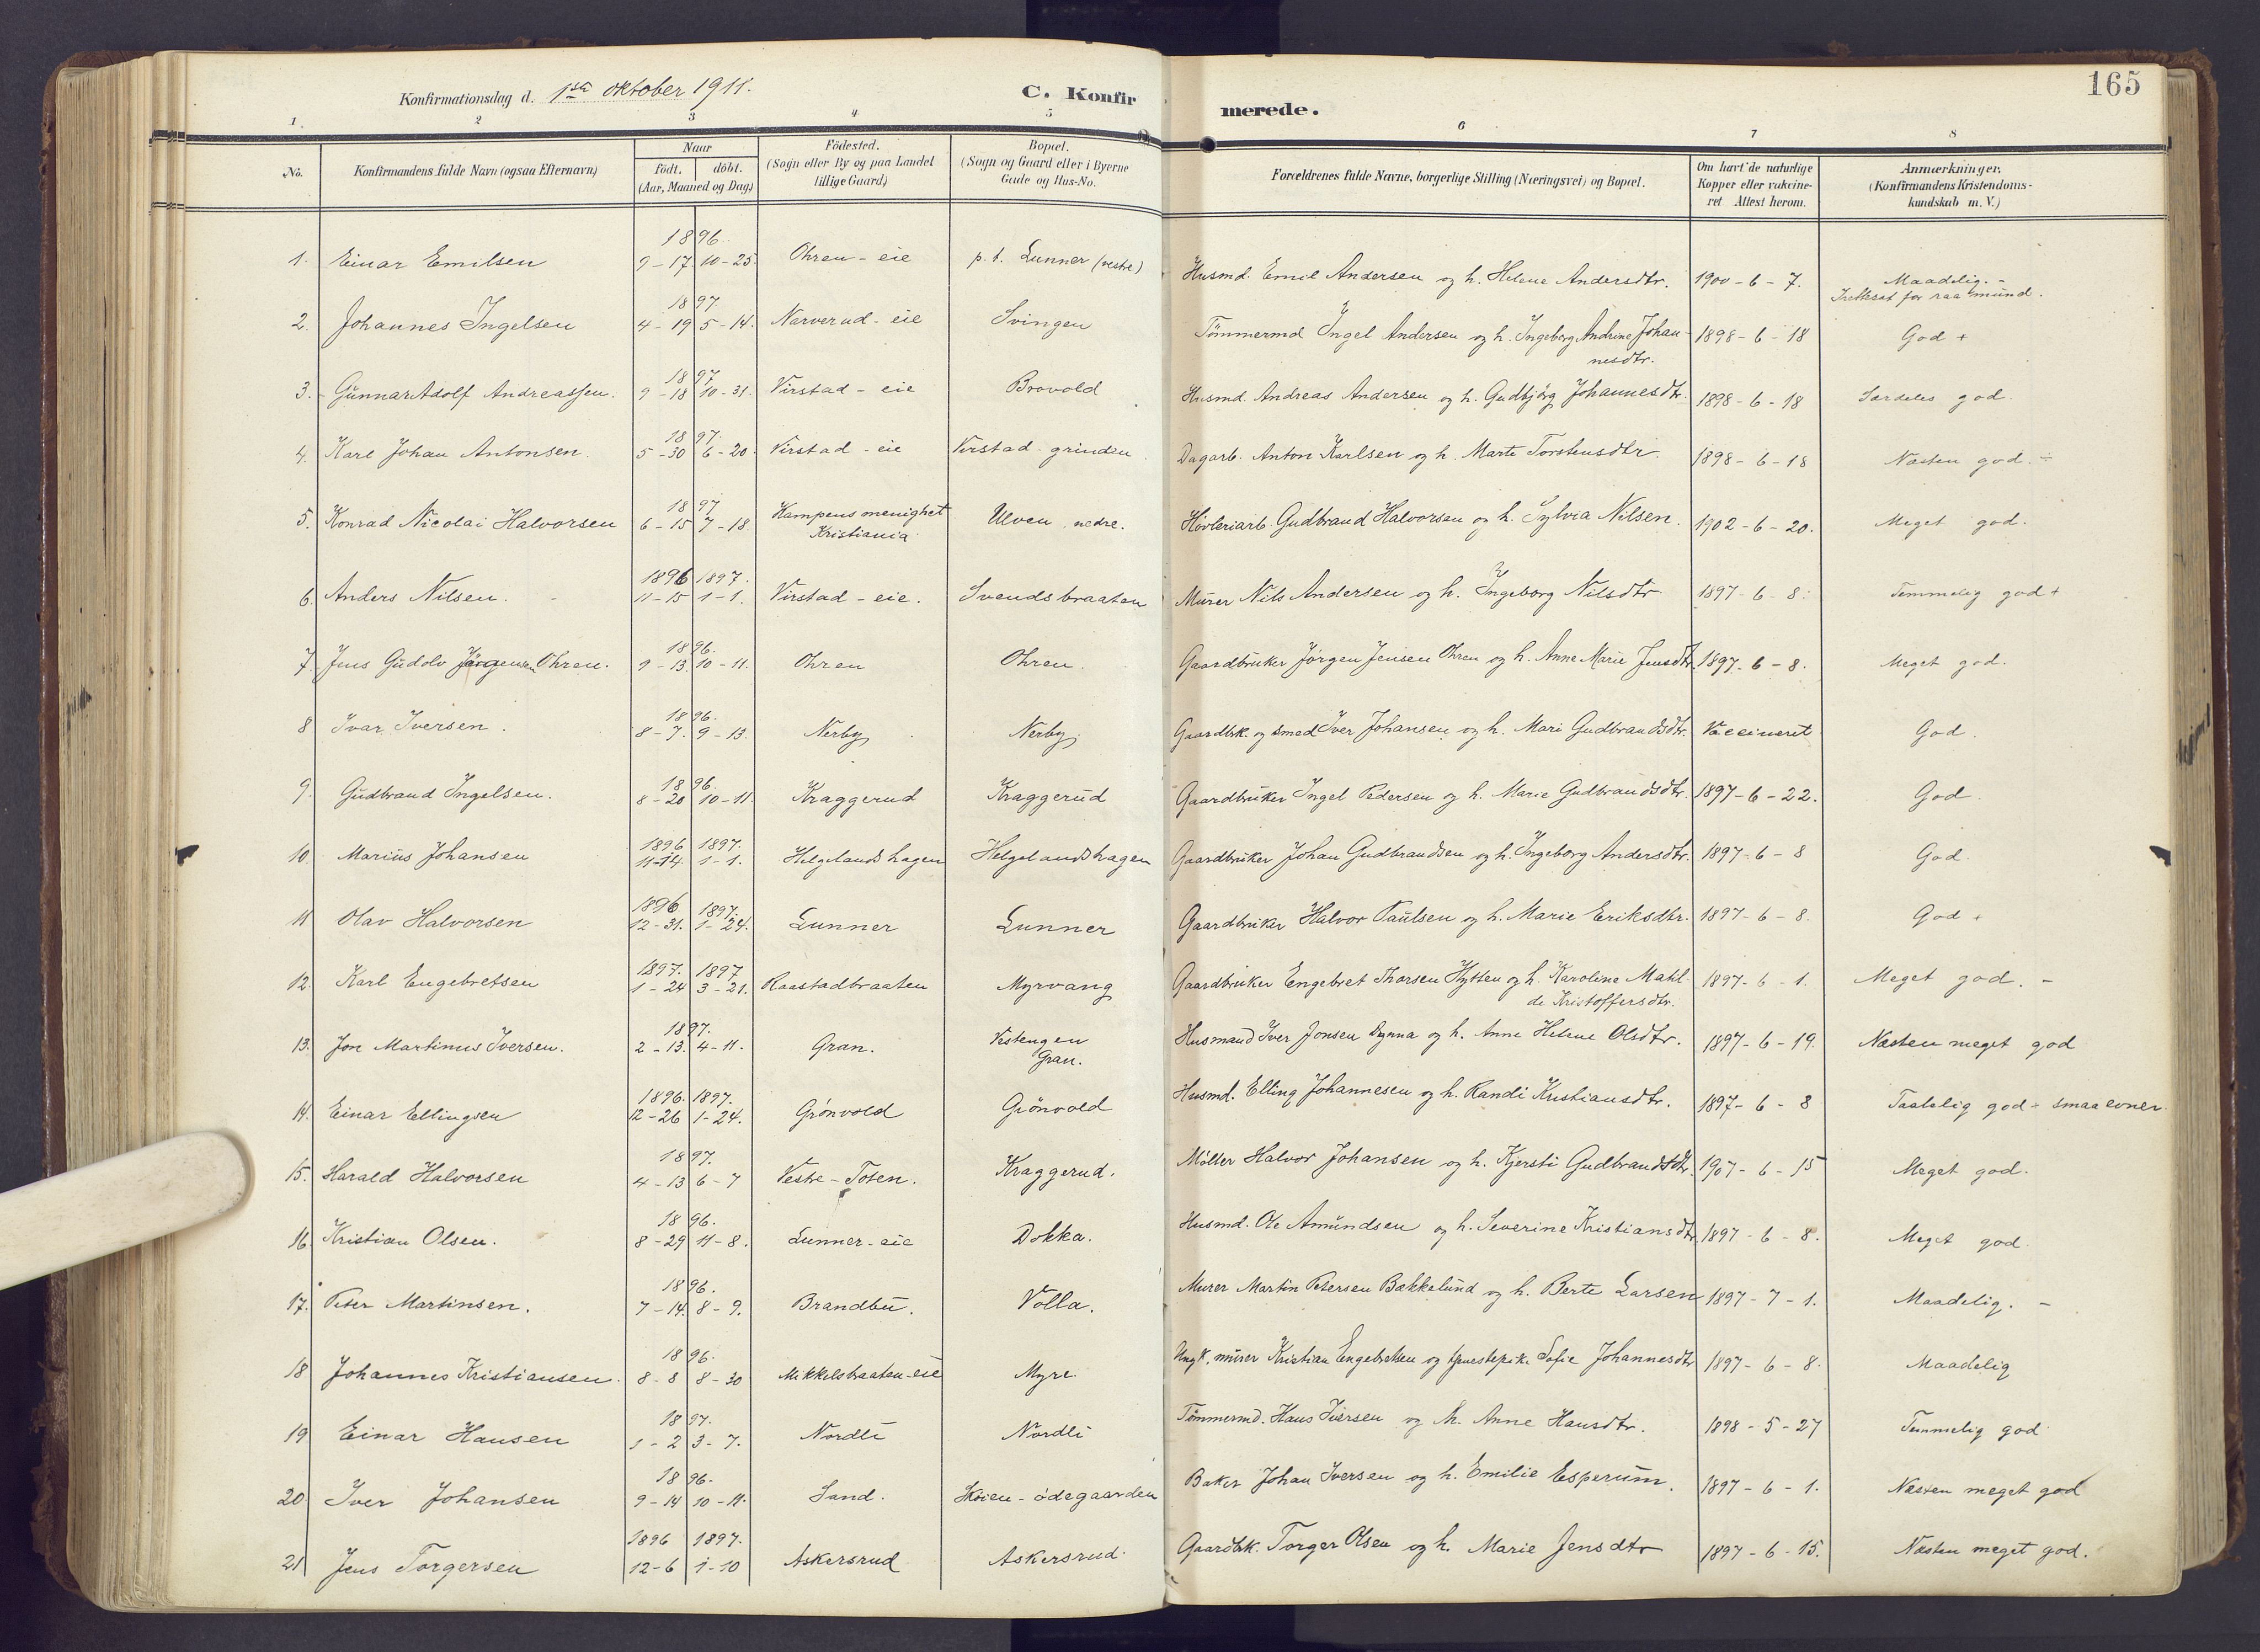 165
Konfirmationsdag d. 1ste oktober 1911.
C. Konfirmerede.
1 2 3 4 5 6 7 8
No. | Konfirmandens fulde Navn (ogsaa Efternavn) | Naar født, døbt. (Aar, Maaned og Dag) | Fødested. (Sogn eller By og paa Landet tillige Gaard) | Bopæl. (Sogn og Gaard eller i Byerne Gade og Hus-No. | Forældrenes fulde Navne, borgerlige Stilling (Næringsvei) og Bopæl. | Om havt de naturlige Kopper eller vakcineret Attest herom. | Anmærkninger. (Konfirmandens Kristendomskundskab m. V.)
1. Einar Emilsen | 1896. 9-17. 10-25. | Ohren - eie | p.t. Lunner (vestre) | Husmd. Emil Andersen og h. Helene Andersdtr. | 1900-6-7. | Maadelig. - Irettesat for raa mund.
2. Johannes Ingelsen | 1897. 4-19 5-14. | Narverud - eie | Svingen | Tømmermd Ingel Andersen og h. Ingeborg Andrine Johannesdtr. | 1898-6-18 | God +
3. Gunnar Adolf Andreassen. | 1897 9-18 10-31. | Virstad - eie | Brovold | Husmd. Andreas Andersen og h. Gudbjørg Johannesdtr. | 1898-6-18 | Særdeles god.
4. Karl Johan Antonsen. | 1897. 5-30 6-20. | Virstad - eie | Virstad-grinden | Dagarb. Anton Karlsen og h. Marte Torstensdtr. | 1898-6-18 | Næsten god. ÷
5. Konrad Nicolai Halvorsen | 1897 6-15 7-18. | Kampens menighet Kristiania | Ulven, nedre. | Høvleriarb. Gudbrand Halvorsen og h. Sylvia Nilsen. | 1902-6-20. | Meget god.
6. Anders Nilsen. | 1896 1897. 11-15 1-1. | Virstad - eie. | Svendsbraaten | Murer Nils Andersen og h. Ingeborg Nilsdtr | 1897-6-8. | Temmelig god +
7. Jens Gudolv Jørgensen Ohren. | 1896. 9-13. 10-11. | Ohren | Ohren. | Gaardbruker Jørgen Jensen Ohren og h. Anne Marie Jensdtr | 1897-6-8. | Meget god.
8 Ivar Iversen. | 1896. 8-7. 9-13. | Nerby | Nerby | Gaardbrk. og smed Iver Johansen og h. Mari Gudbrandsdtr. | Vaccineret | God.
9. Gudbrand Ingelsen. | 1896. 8-20 10-11. | Kraggerud | Kraggerud | Gaardbruker Ingel Pedersen og h. Marie Gudbrandsdtr. | 1897-6-22. | God.
10. Marius Johansen | 1896 1897. 11-14. 1-1. | Helgelandshagen | Helgelandshagen | Gaardbruker Johan Gudbrandsen og h. Ingeborg Andersdtr. | 1897-6-8 | God.
11 Olav Halvorsen | 1896 1897. 12-31. 1-24. | Lunner | Lunner | Gaardbruker Halvor Paulsen og h. Marie Eriksdtr. | 1897-6-8. | God +
12. Karl Engebretsen | 1897. 1897 1-24 3-21. | Raastadbraaten | Myrvang | Gaardbruker Engebret Thorsen Hytten og h. Karoline Matilde Kristoffersdtr. | 1897-6-1. | Meget god. -
13. Jon Martinus Iversen. | 1897. 2-13. 4-11. | Gran. | Vestengen Gran. | Husmand Iver Jonsen Dynna og h. Anne Helene Olsdtr. | 1897-6-19. | Næsten meget god
14. Einar Ellingsen | 1896. 1897. 12-26 1-24. | Grønvold | Grønvold | Husmd. Elling Johannesen og h. Randi Kristiansdtr. | 1897-6-8 | Taalelig god - smaa evner.
15. Harald Halvorsen | 1897. 4-13 6-7 | Vestre-Toten. | Kraggerud. | Møller Halvor Johansen og h. Kjersti Gudbrandsdtr. | 1907-6-15 | Meget god.
16. Kristian Olsen. | 1896. 8-29 11-8. | Lunner-eie | Dokka. | Husmd. Ole Amundsen og h. Severine Kristiansdtr | 1897-6-8. | Meget god.
17. Peter Martinsen. | 1896. 7-14. 8-9. | Brandbu. | Volla. | Murer Martin Petersen Bækkelund og h. Berte Larsen | 1897-7-1. | Maadelig. -
18 Johannes Kristiansen. | 1896. 8-8 8-30 | Mikkelsbraaten-eie | Myre. | Ungk. murer Kristian Engebretsen og tjenestepike Sofie Johannesdtr | 1897-6-8. | Maadelig
19 Einar Hansen | 1897. 1-2 3-7. | Nordli | Nordli | Tømmermd. Hans Iversen og h. Anne Hansdtr. | 1898-5-27 | Temmelig god
20 Iver Johansen | 1896. 9-14 10-11. | Sand. | Skøien-ødegaarden | Baker Johan Iversen og h. Emilie Esperum. | 1897-6-1. | Næsten meget god
21 Jens Torgersen | 1896 1897. 12-6 1-10 | Askersrud | Askersrud. | Gaardbrk. Torger Olsen og h. Marie Jensdtr | 1897-6-15. | Næsten meget god.